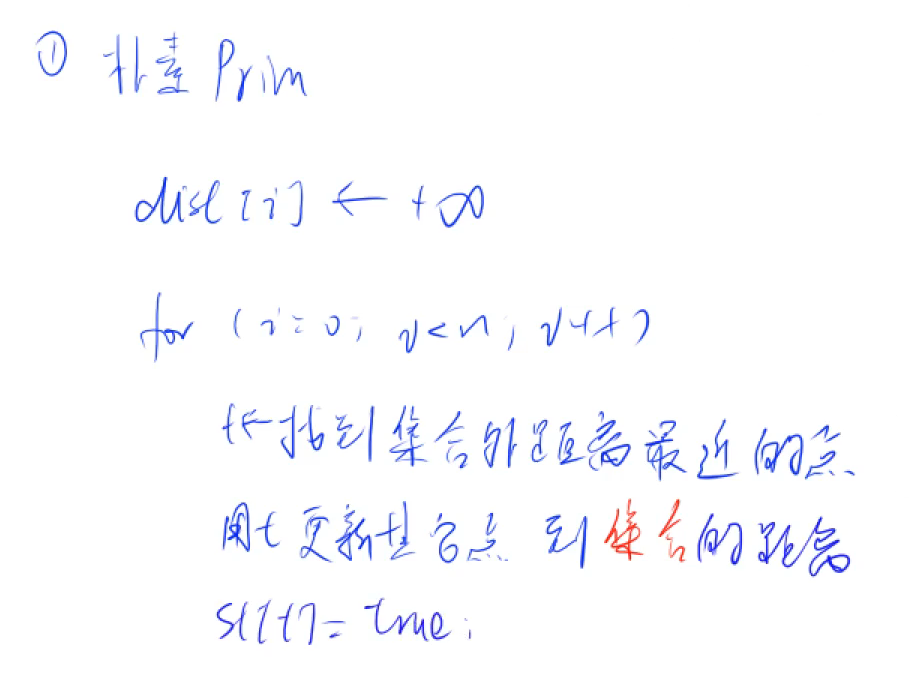 ① 朴素Prim
dist[i] ← +∞
for (i=0; i<n; i++)
t←找到集合外距离最近的点
用t更新其它点到集合的距离
st[t]=true;